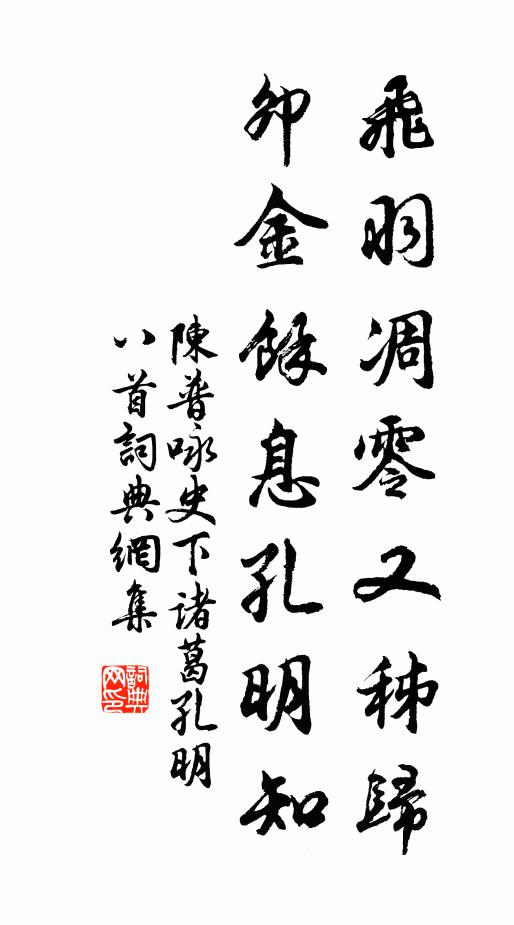 飛羽凋零又秭歸
卯金餘息孔明知
陳普咏史下諸葛孔明
八首詞典網集
詞典
网印